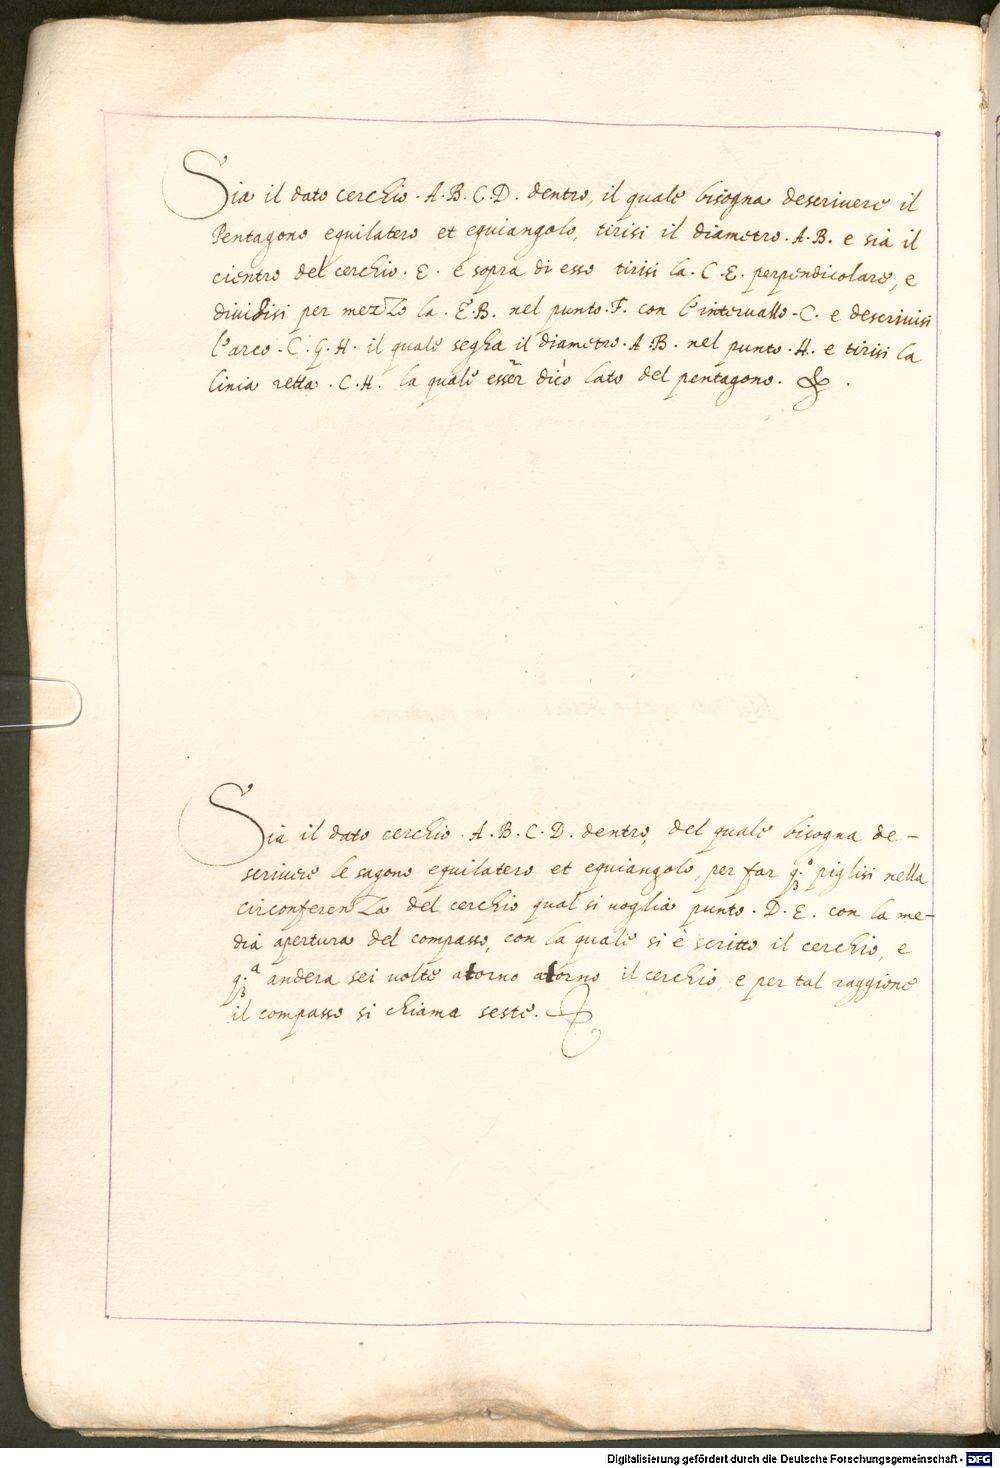 Sia il dato cerchio . A . B . C . D . dentro, il quale bisogna descrivere il
Pentagono equilatero et equiangolo, tirisi il diametro . A . B . e sia il
cientro del cerchio . E . e sopra di esso tirisi la . C . E . perpendicolare, e
dividisi per mezzo la . E . B . nel punto . F . con l'intervallo . C . e descrivisi
l'arco . C . G . H . il quale segha il diametro . A . B . nel punto . H . e tirisi la
linia retta . C . H . la quale esser dico lato del pentagono .
Sia il dato cerchio . A . B . C . D . dentro, del quale bisogna de-
scrivere le sagono equilatero et equiangolo, per far q.º piglisi nella
circonferenza del cerchio qual si voglia punto . D . E . con la me-
dia apertura del compasso, con la quale si è scritto il cerchio, e
q.ª andera sei volte atorno atorno il cerchio, e per tal raggione
il compasso si chiama seste .
Digitalisierung gefördert durch die Deutsche Forschungsgemeinschaft - DFG